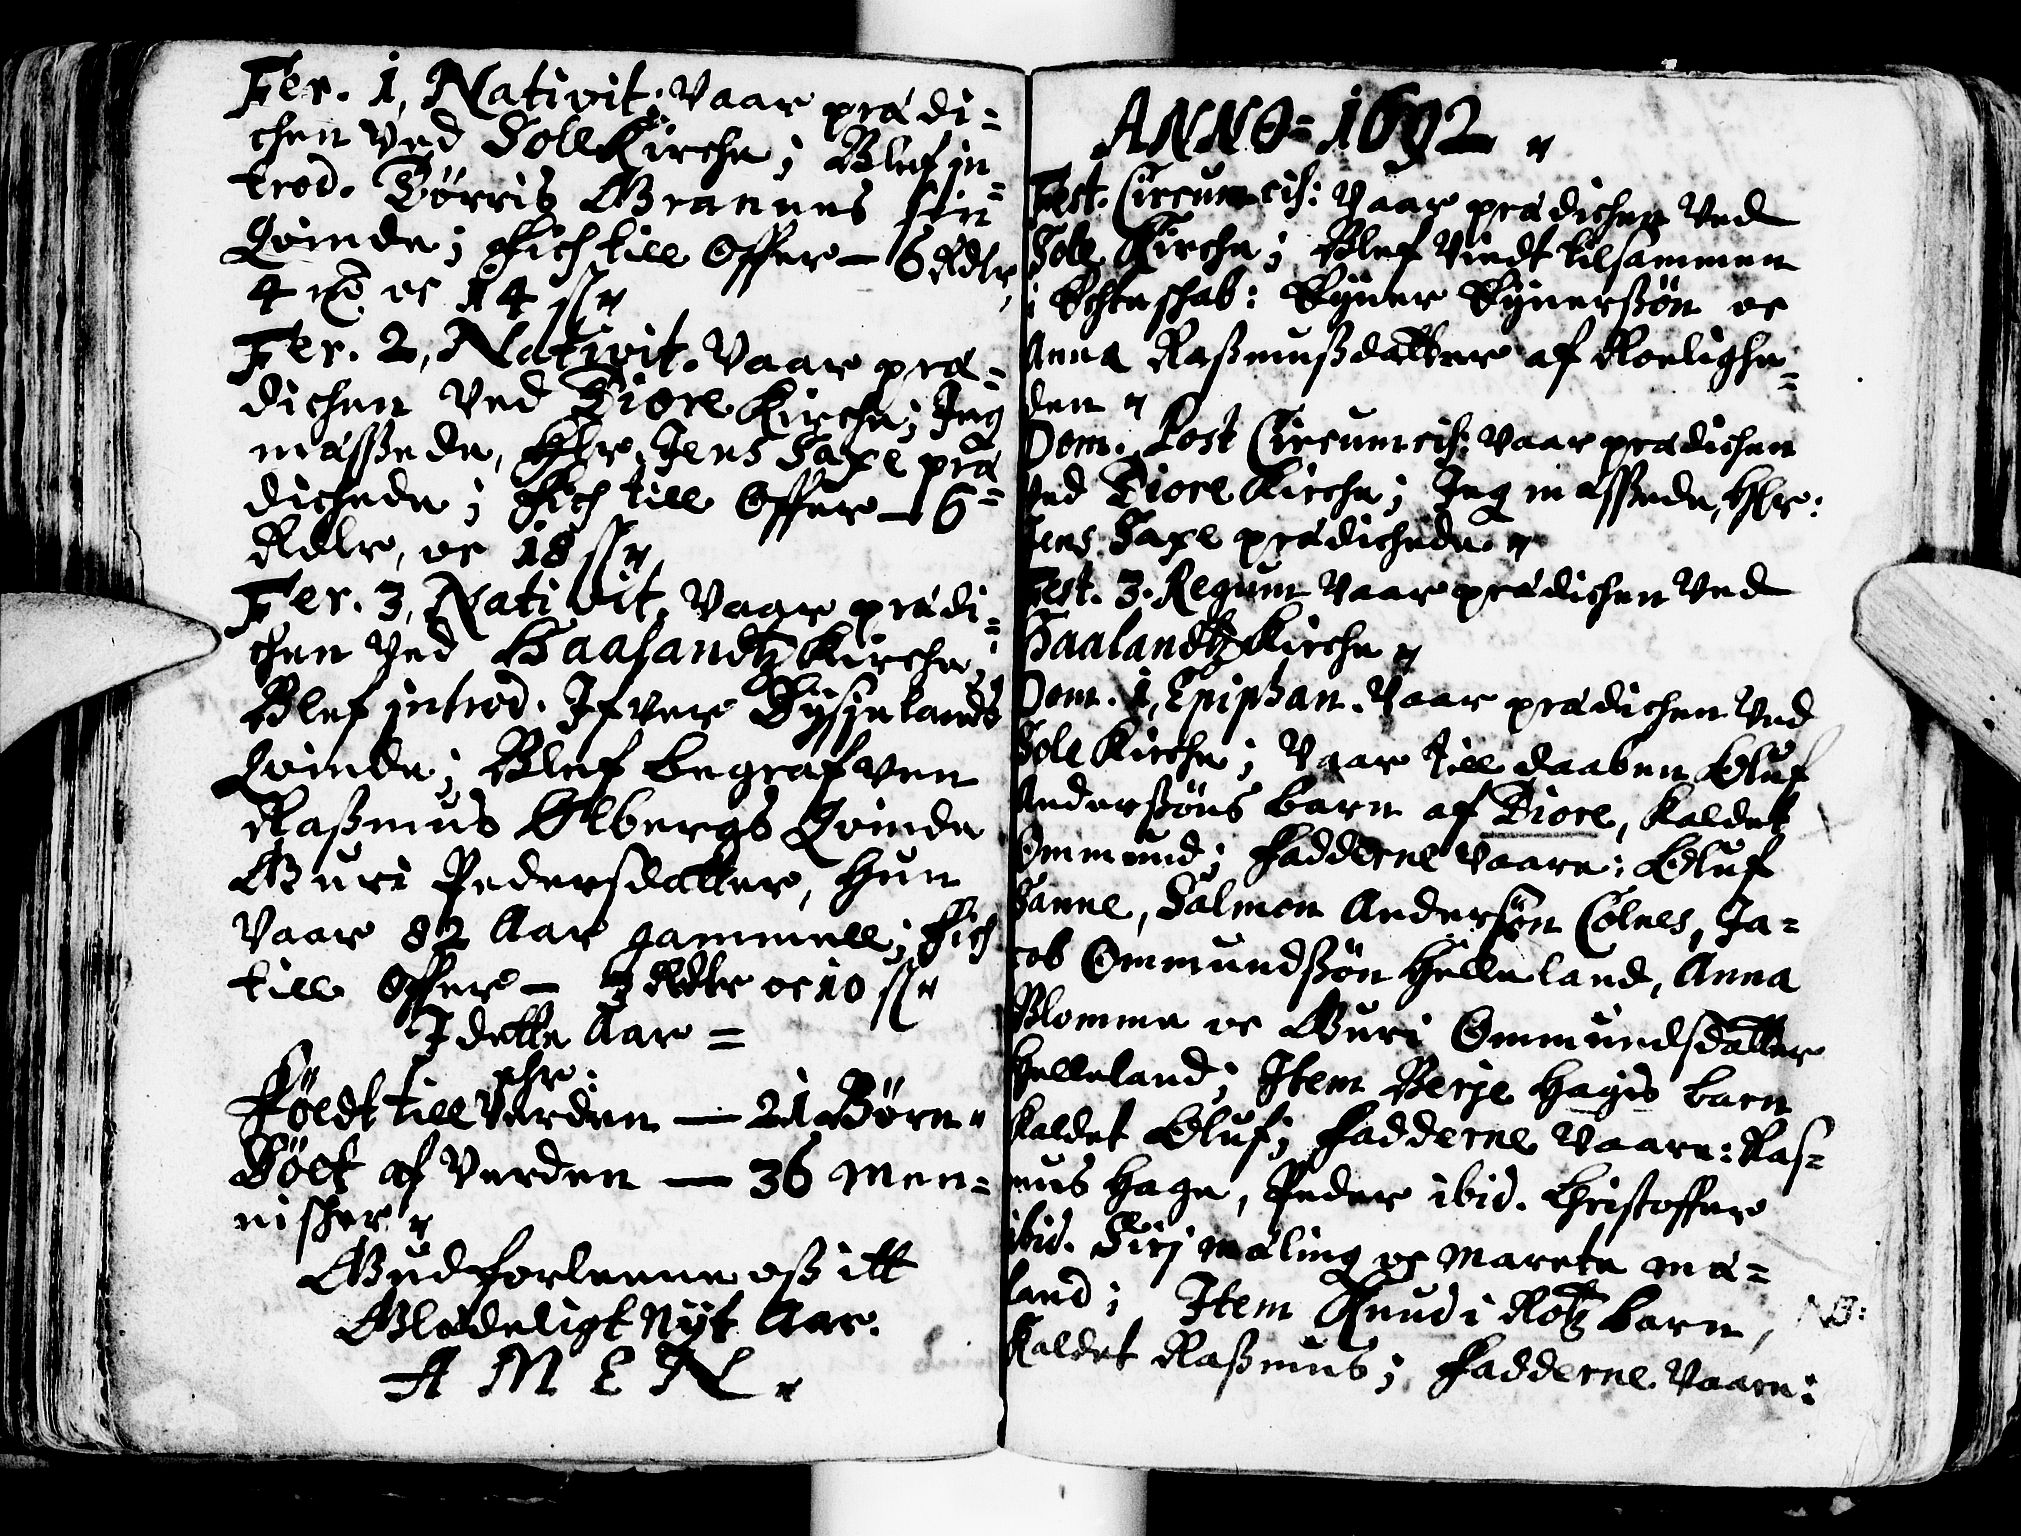 Fer. 1, Nativit: Vaar prædi=
chen Ved SolleKirche; Blef in=
trod. Børris Grannes sin
Qvinde; Fich till Offer — 6 Rdlr,
4 mk oc 14 ſſ"
Fer. 2, Nativit. Vaar præ=
dichen Ved Tiore Kirche; Jeg
mæssede, Hlr. Jens Saxe præ=
dichede; Fich till Offer — 6
Rdlr, oc 18 ſſ"
Fer. 3, Nativit, Vaar prædi=
chen Ved Haalandtz Kirche;
Blef introd. Ifver Dysjelands
Qvinde; Blef begrafven
Rasmus Ølbergs Qvinde
Guri Pedersdatter, hun
Vaar 82 Aar gammell; Fich
till Offer — 3 Rdlr oc 10 ſſ"
I dette Aar =
ehr:
Føedt till Verden — 21 Børn"
Døet af Verden — 36 Men=
nisker"
Gud forleene oß itt
Glædeligt Nyt Aar.
A M E N"
ANNO = 1692"
Fest. Circumcis: Vaar prædichen Ved
Sole Kirche; Blef Viedt tilsammen
i Echteskab: Eyner Eynersßøn oc
Anna Raßmußdatter af Roelighe=
den"
Dom. Post Circumcis: Vaar prædichen
Ved Tiore Kirche; Jeg mæssede, Hlr:
Jens Saxe prædichede"
Fest. 3. Regum Vaar prædichen Ved
Haalandtz Kirche"
Dom. 1, Epiphan. Vaar prædichen Ved
Sole Kirche; Vaar till daaben Oluf
Anderßøns barn af Tiore, kaldet
Ommund; Fadderne Vaare: Oluf
Sanne, Salmon Andersøn Colnes, Ja=
cob Ommundßøn Helleland, Anna
Blomme oc Guri Ommundsdatter
Helleland; Item Berje Hages barn
kaldet Oluf; Fadderne Vaare: Ras=
mus Hage, Peder ibid. Christoffer
ibid. Siri Mæling oc Marete Mæ=
land; Item Knud i Rotz barn, NB:
kaldet Raßmus; Fadderne Vaare: